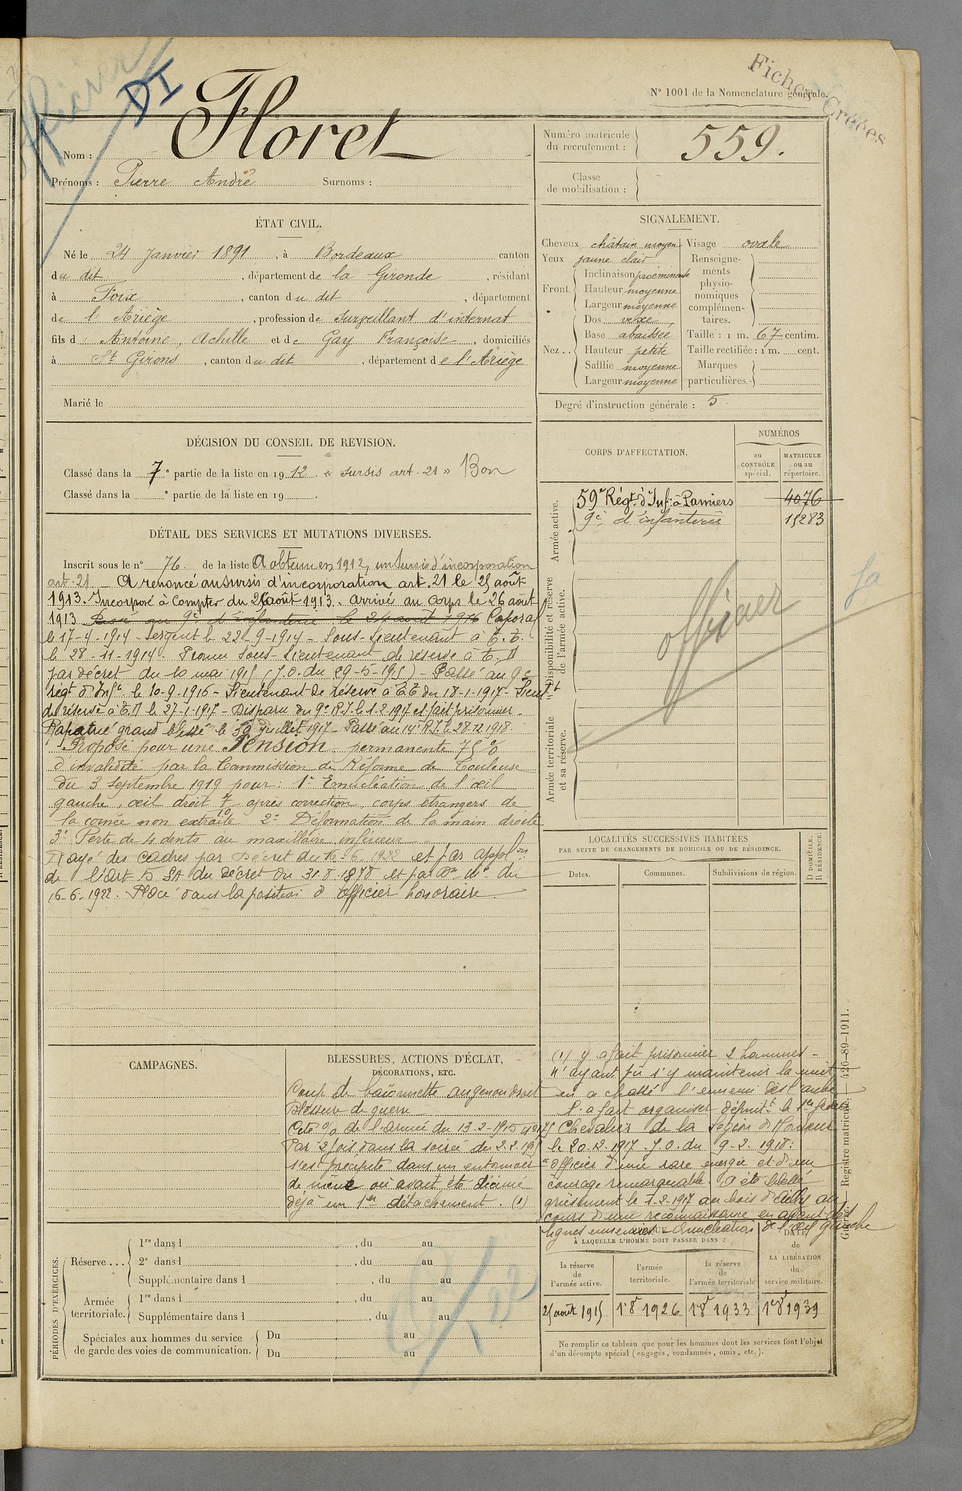 officier
DI
Fiches Créées
N° 1001 de la Nomenclature générale.
Nom : Floret
Prénoms : Pierre André Surnoms :
Numéro matricule du recrutement : 559.
Classe de mobilisation :
ÉTAT CIVIL.
Né le 24 Janvier 1891, à Bordeaux canton
du dit, département de la Gironde, résidant
à Foix, canton du dit, département
de l'Ariège, profession de Surveillant d'internat
fils d Antoine, Achille et de Gay Françoise, domiciliés
à St Girons, canton du dit, département de l'Ariège
Marié le
SIGNALEMENT.
Cheveux châtain moyen
Yeux jaune clair
Front. Inclinaison proéminente
Hauteur moyenne
Largeur moyenne
Nez.. Dos vexe
Base abaissée
Hauteur petite
Saillie moyenne
Largeur moyenne
Visage ovale
Renseignements physionomiques complémentaires.
Taille : 1 m. 67 centim.
Taille rectifiée : 1 m. cent.
Marques particulières.
Degré d'instruction générale : 5
DÉCISION DU CONSEIL DE REVISION.
Classé dans la 7e partie de la liste en 1912 « sursis art. 21 » Bon
Classé dans la e partie de la liste en 19 .
DÉTAIL DES SERVICES ET MUTATIONS DIVERSES.
Inscrit sous le n° 76 de la liste A obtenu en 1912, un Sursis d'incorporation
art. 21 _ A renoncé au sursis d'incorporation art. 21 le 25 août
1913. Incorporé à Compter du 26 août 1913. arrivé au corps le 26 août
1913 Passé au 9e d'infanterie le 24 août 1916 Caporal
le 17-4-1914 - Sergent le 22-9-1914 - Sous-Lieutenant à T.T.
le 28-11-1914. Promu Sous-Lieutenant de réserve à T.D
par décret du 10 mai 1915 (J.O. du 29-5-1915) - Passé au 9e
régt d'Infie le 10-9-1916 - Lieutenant de réserve à T.T. du 18-1-1917 - Lieutt
de réserve à T.D le 27-1-1917 - Disparu du 9e R.I. le 1.2.1917 et fait prisonnier.
Rapatrié grand blessé le 30 Juillet 1917 - Passé au 14e R.I. le 28.12.1918.
Proposé pour une Pension permanente 75 %
d'invalidité par la Commission de Réforme de Toulouse
du 3 septembre 1919 pour : 1° Enucléation de l'œil
gauche, œil droit 7/10 après correction, corps étrangers de
la cornée non extraits 2° Déformation de la main droite
3° Perte de 4 dents au maxillaire inférieur
Rayé des cadres par Décret du 16-6-1922 et par applon
de l'art. 5 du décret du 31.8.1878 et par du
16-6-1922. Placé dans la position d'officier honoraire.
CORPS D'AFFECTATION.
NUMÉROS
au CONTRÔLE spécial.
MATRICULE ou au répertoire.
Armée active.
59e Régt d'Inf. à Pamiers 4076
9e d'infanterie 15283
Disponibilité et réserve de l'armée active.
officier
Armée territoriale et sa réserve.
LOCALITÉS SUCCESSIVES HABITÉES
PAR SUITE DE CHANGEMENTS DE DOMICILE OU DE RÉSIDENCE.
Dates. Communes. Subdivisions de région. D DOMICILE. R RÉSIDENCE.
CAMPAGNES.
BLESSURES, ACTIONS D'ÉCLAT, DÉCORATIONS, ETC.
Coup de baïonnette au genou droit
Blessure de guerre
Cité % de l'armée du 13-2-1915
Par 2 fois dans la soirée du 2-2-1915
s'est précipité dans un entonnoir
de mine où avait été décimé
déjà un 1er détachement. (1)
(1) y a fait prisonnier 2 hommes -
n'ayant pu s'y maintenir la nuit
en a chassé l'ennemi dès l'aube
l'a fait organiser définitt le 1er février
Chevalier de la Légion d'Honneur
le 20.12.1917 J.O. du 9-2-1918 :
« officier d'une rare énergie et d'un
courage remarquable. A été blessé
grièvement le 1-2-1917 au bois d' au
cours d'une reconnaissance en avant des
lignes ennemies - Enucléation de l'œil gauche
PÉRIODES D'EXERCICES.
Réserve ... 1re dans l , du au
2e dans l , du au
Supplémentaire dans l , du au
Armée territoriale. 1re dans l , du au
Supplémentaire dans l , du au
Spéciales aux hommes du service de garde des voies de communication. Du au
Du au
À LAQUELLE L'HOMME DOIT PASSER DANS :
la réserve de l'armée active. l'armée territoriale. la réserve de l'armée territoriale
DATE de LA LIBÉRATION du service militaire.
25 août 1915 1er 8bre 1926 1er 8bre 1933 1er 8bre 1939
Ne remplir ce tableau que pour les hommes dont les services font l'objet
d'un décompte spécial (engagés, condamnés, omis, etc.).
Registre matricule. — 426-89-1911.